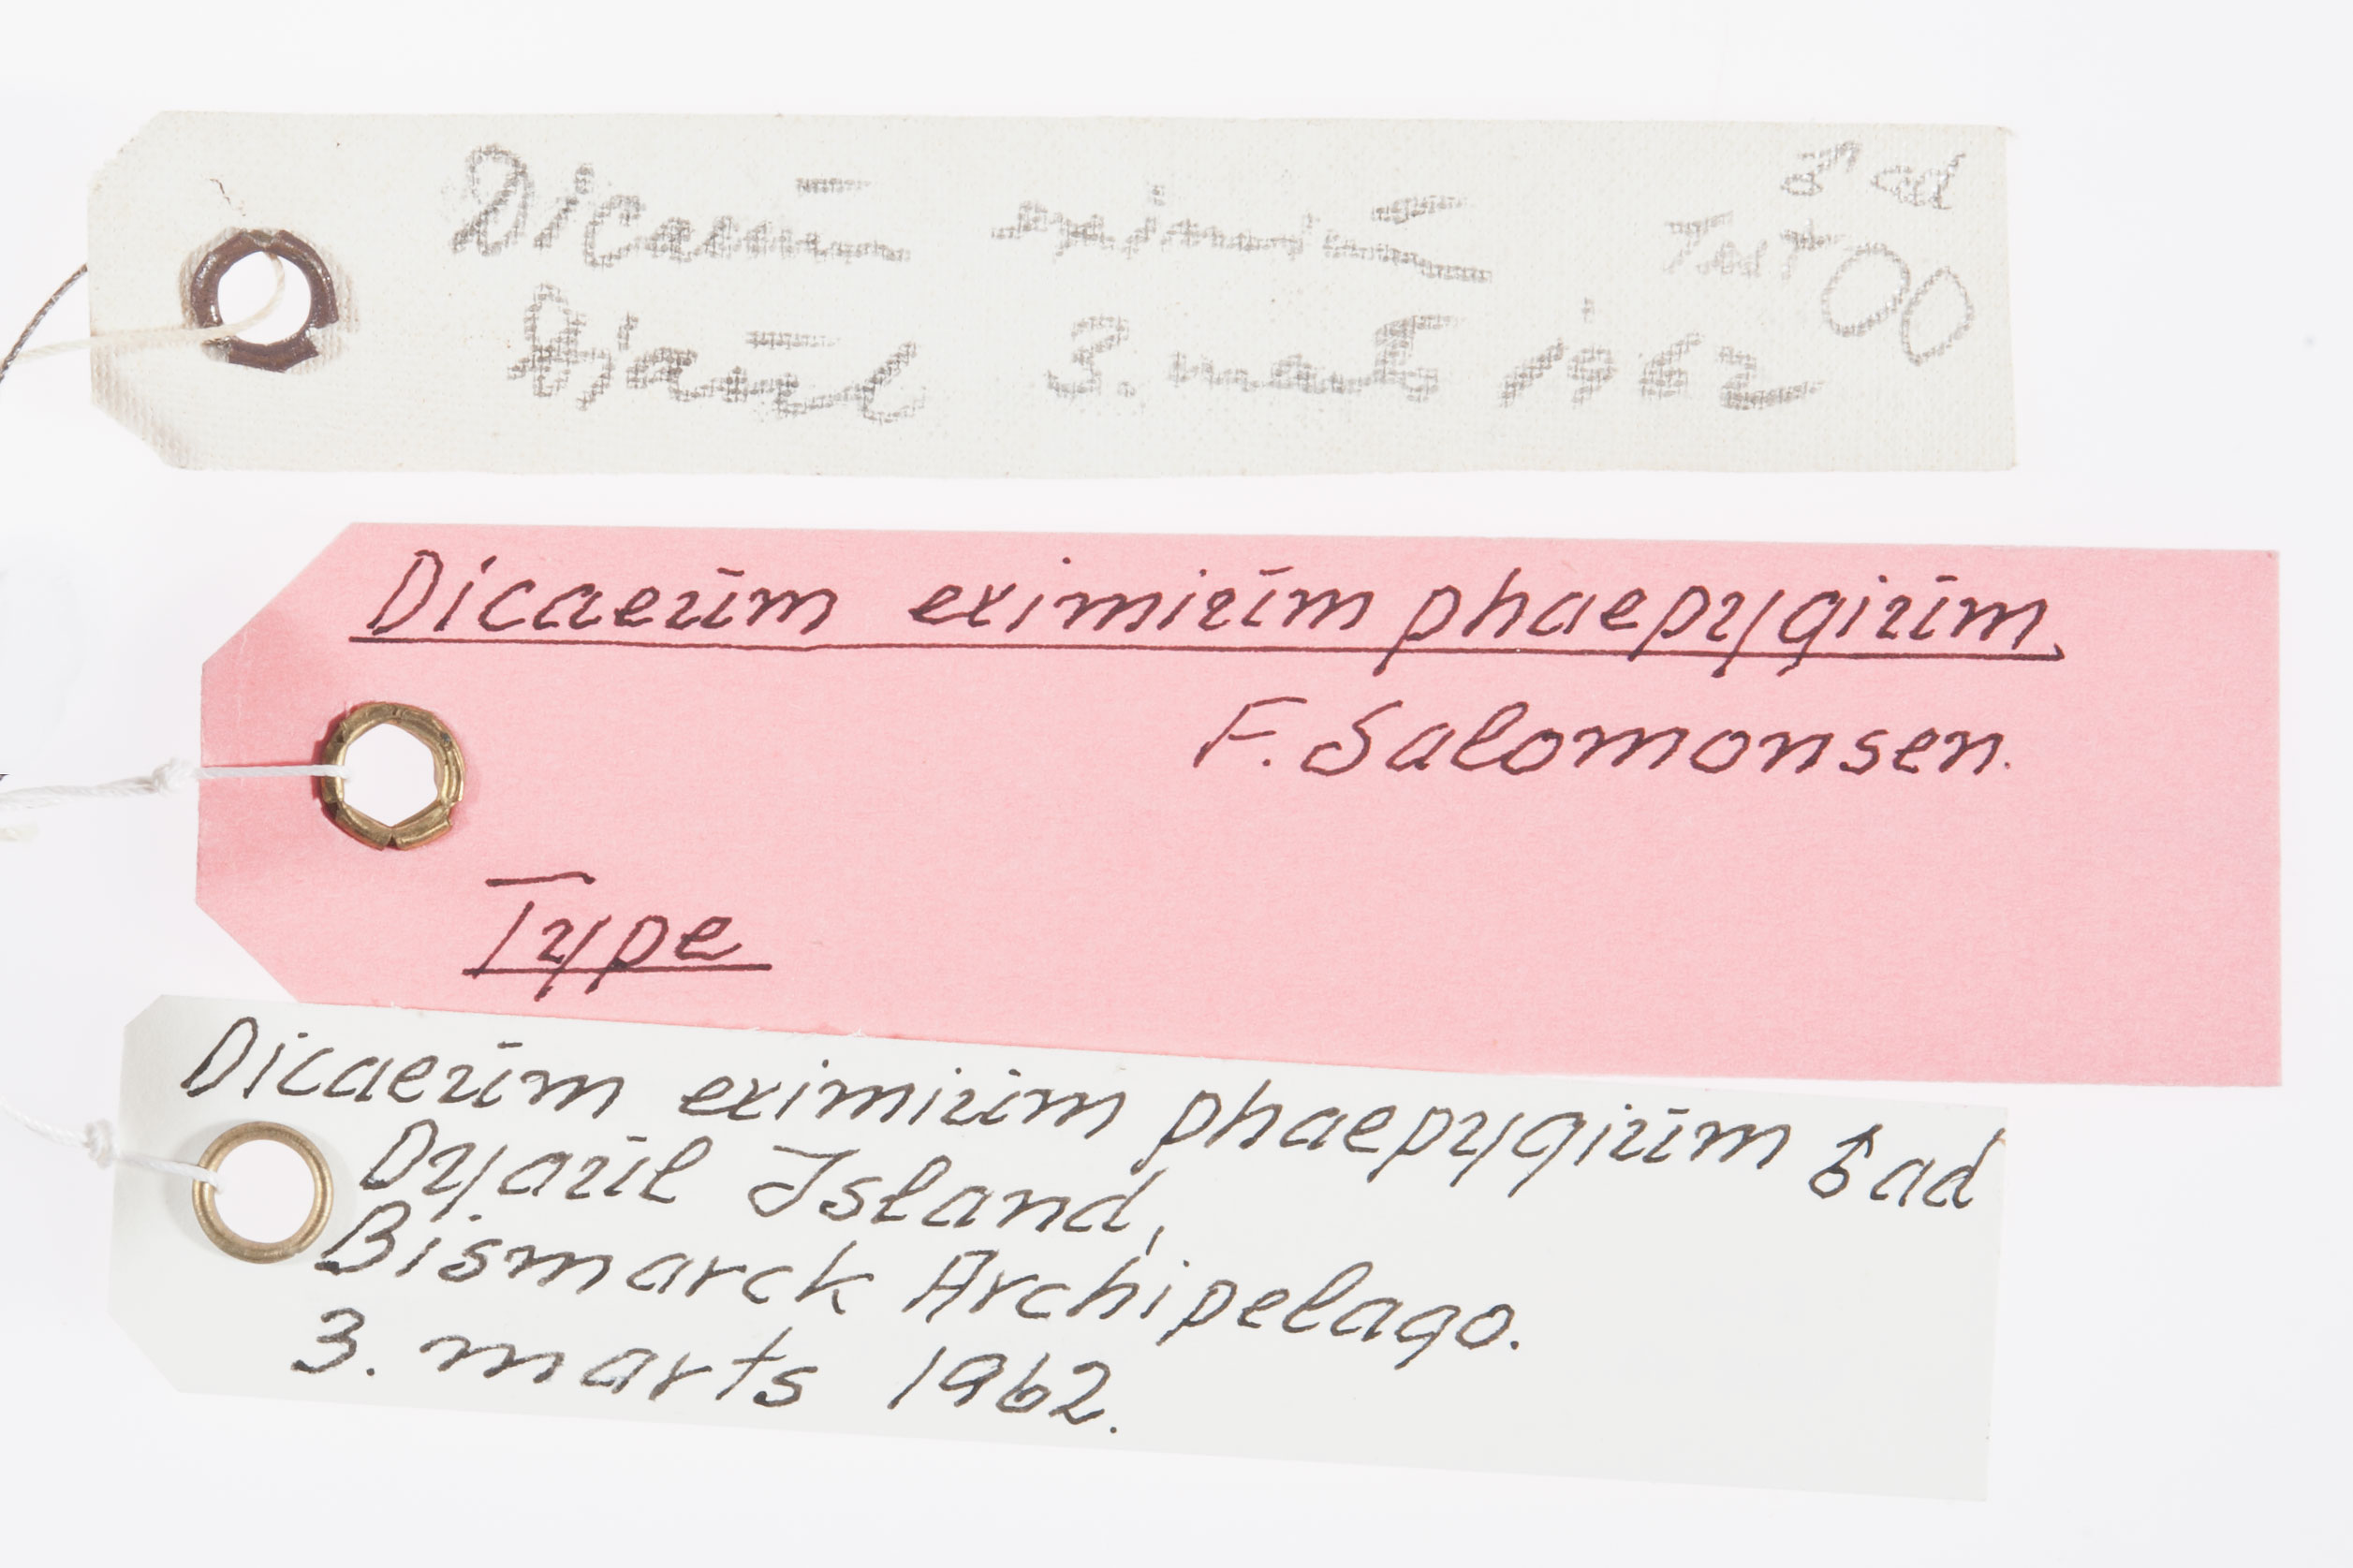 Dicaeum eximium ♂ ad
Test
Djaul 3. marts 1962
Dicaeum eximium phaepygium
F. Salomonsen.
Type
Dicaeum eximium phaepygium ♂ ad
Dyaul Island,
Bismarck Archipelago.
3. marts 1962.